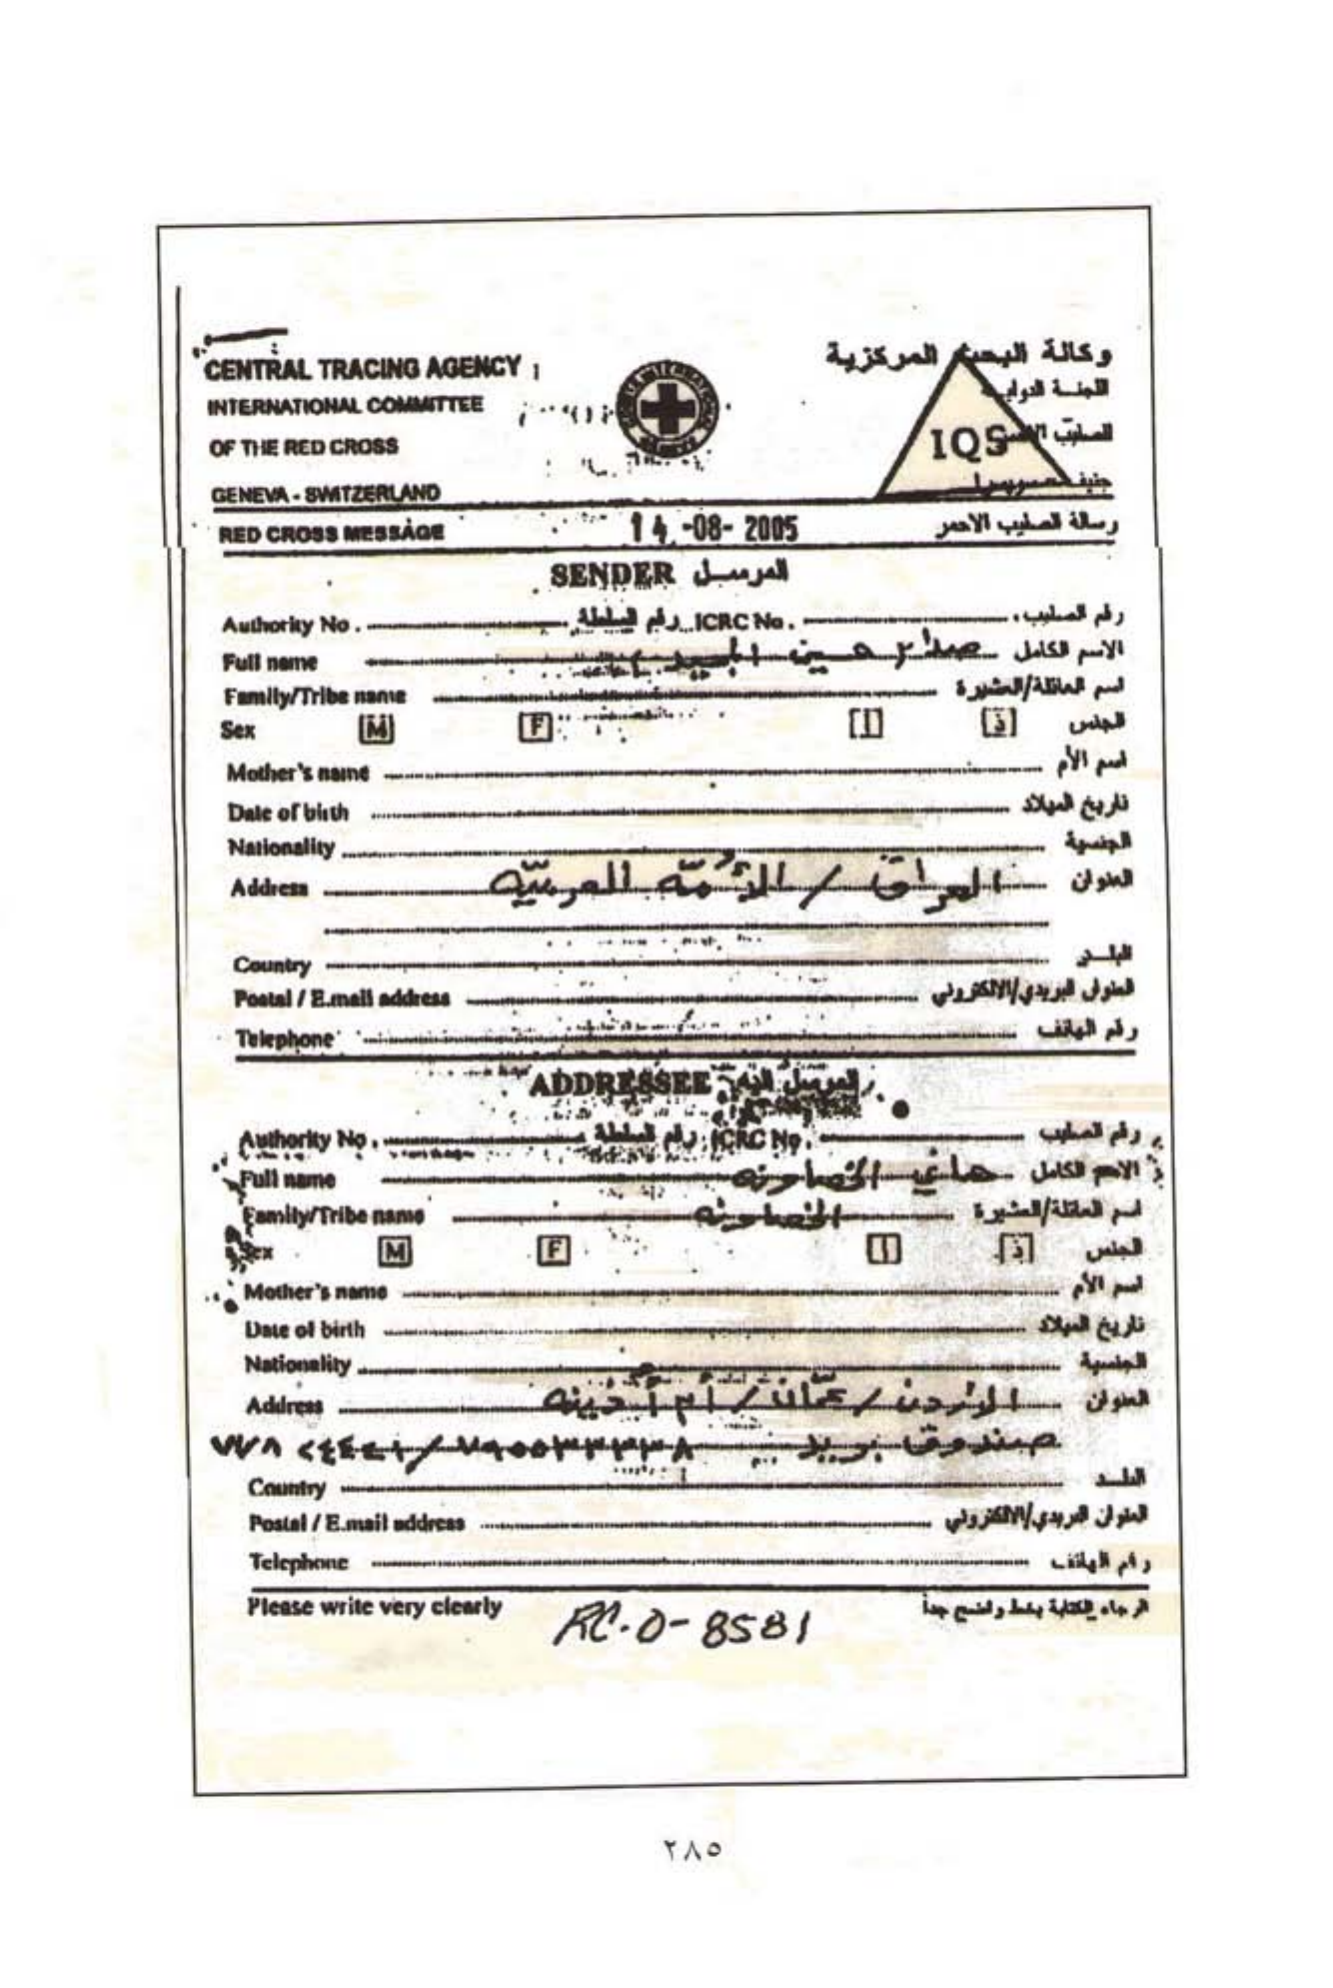 CENTRAL TRACING AGENCY وكالة البحث المركزية
INTERNATIONAL COMMITTEE اللجنة
OF THE RED CROSS الصليب
IQS
GENEVA - SWITZERLAND
RED CROSS MESSAGE 14 -08- 2005 رسالة الصليب الاحمر
SENDER المرسل
Authority No . رقم السلطة ICRC No . رقم الصليب
Full name صدام حسين المجيد الاسم الكامل
Family/Tribe name اسم العائلة/العشيرة
Sex M F أ ذ الجنس
Mother's name اسم الأم
Date of birth تاريخ الميلاد
Nationality الجنسية
Address العراق / الأُمّة العربيّة العنوان
Country البلد
Postal / E.mail address العنوان البريدي/الالكتروني
Telephone رقم الهاتف
ADDRESSEE المرسل اليه
Authority No . رقم السلطة ICRC No . رقم الصليب
Full name هاني الخصاونه الاسم الكامل
Family/Tribe name الخصاونه اسم العائلة/العشيرة
Sex M F أ ذ الجنس
Mother's name اسم الأم
Date of birth تاريخ الميلاد
Nationality الجنسية
Address الأردن / عمّان / أم أذينه العنوان
صندوق بريد
Country البلد
Postal / E.mail address العنوان البريدي/الالكتروني
Telephone رقم الهاتف
Please write very clearly الرجاء الكتابة بخط واضح جداً
RC-0-8581
٢٨٥